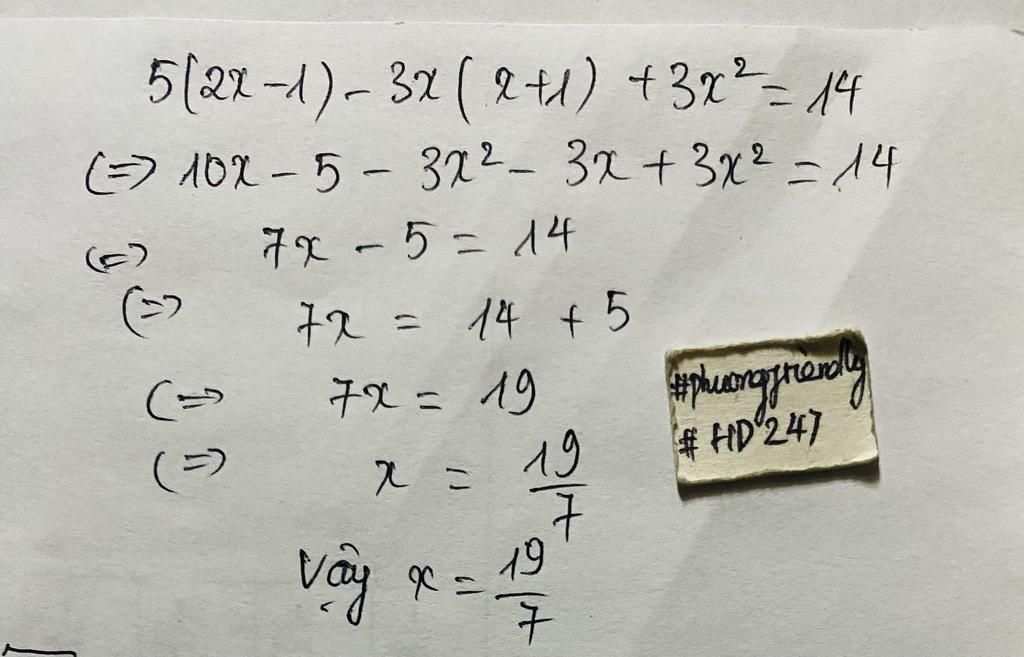 5(2x-1) - 3x(x+1) + 3x² = 14
(=> 10x - 5 - 3x² - 3x + 3x² = 14
(=> 7x - 5 = 14
(=> 7x = 14 + 5
(=> 7x = 19
(=> x = 19/7
Vậy x = 19/7
#phuongfriendly
# HD247